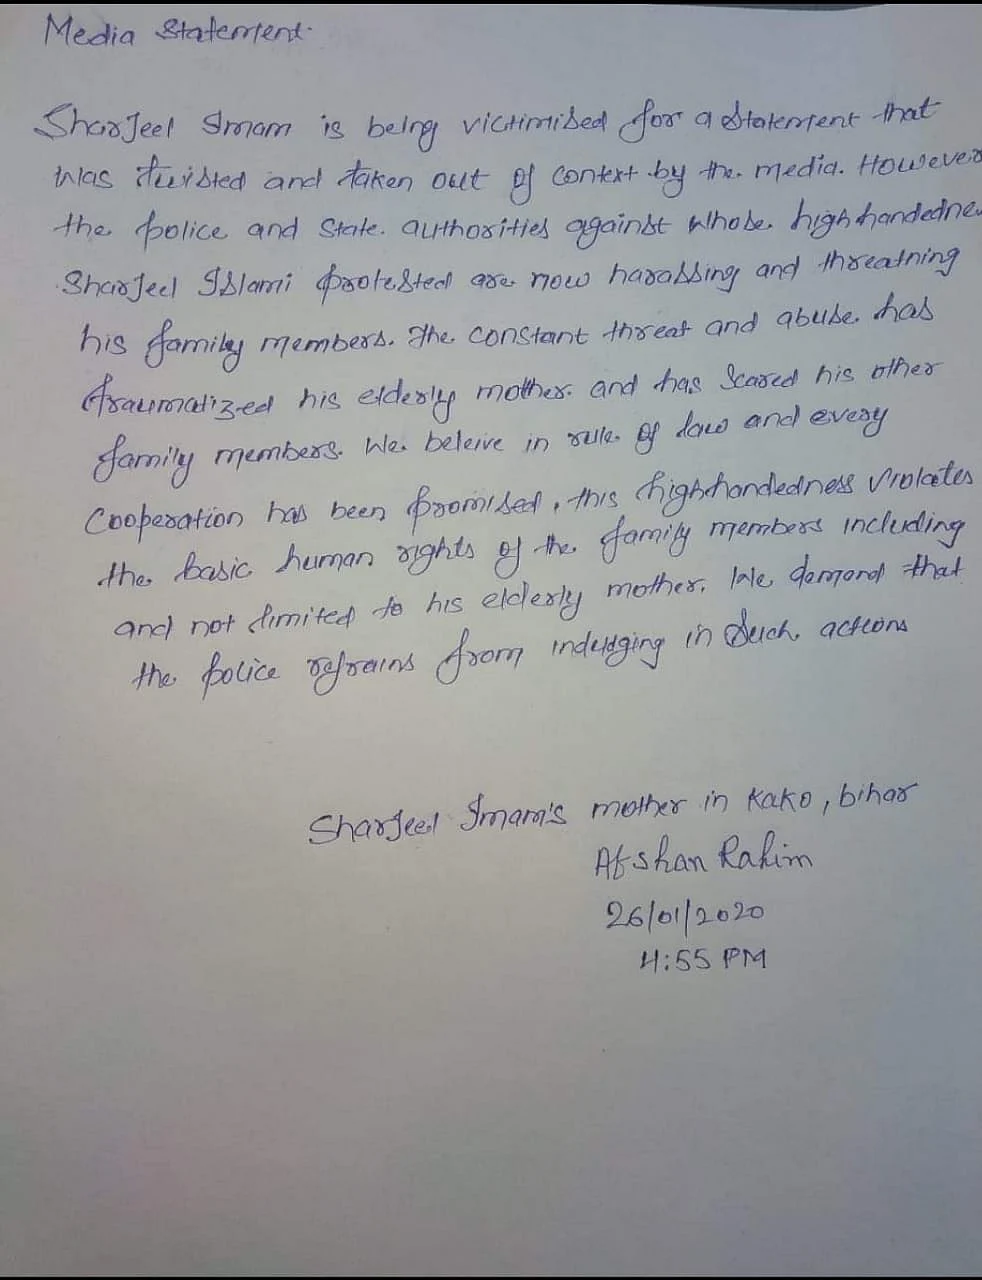 Media Statement.
Sharjeel Imam is being victimised for a statement that
was twisted and taken out of context by the media. However
the police and state authorities against whose highhandedne
Sharjeel Islami protested are now harassing and threatning
his family members. The constant threat and abuse has
traumatized his elderly mother and has scared his other
family members. We beleive in rule of law and every
cooperation has been promised, this highhandedness violates
the basic human rights of the family members including
and not limited to his elderly mother. We demand that
the police refrains from indulging in such actions
Sharjeel Imam's mother in Kako, bihar
Afshan Rahim
26/01/2020
4:55 PM